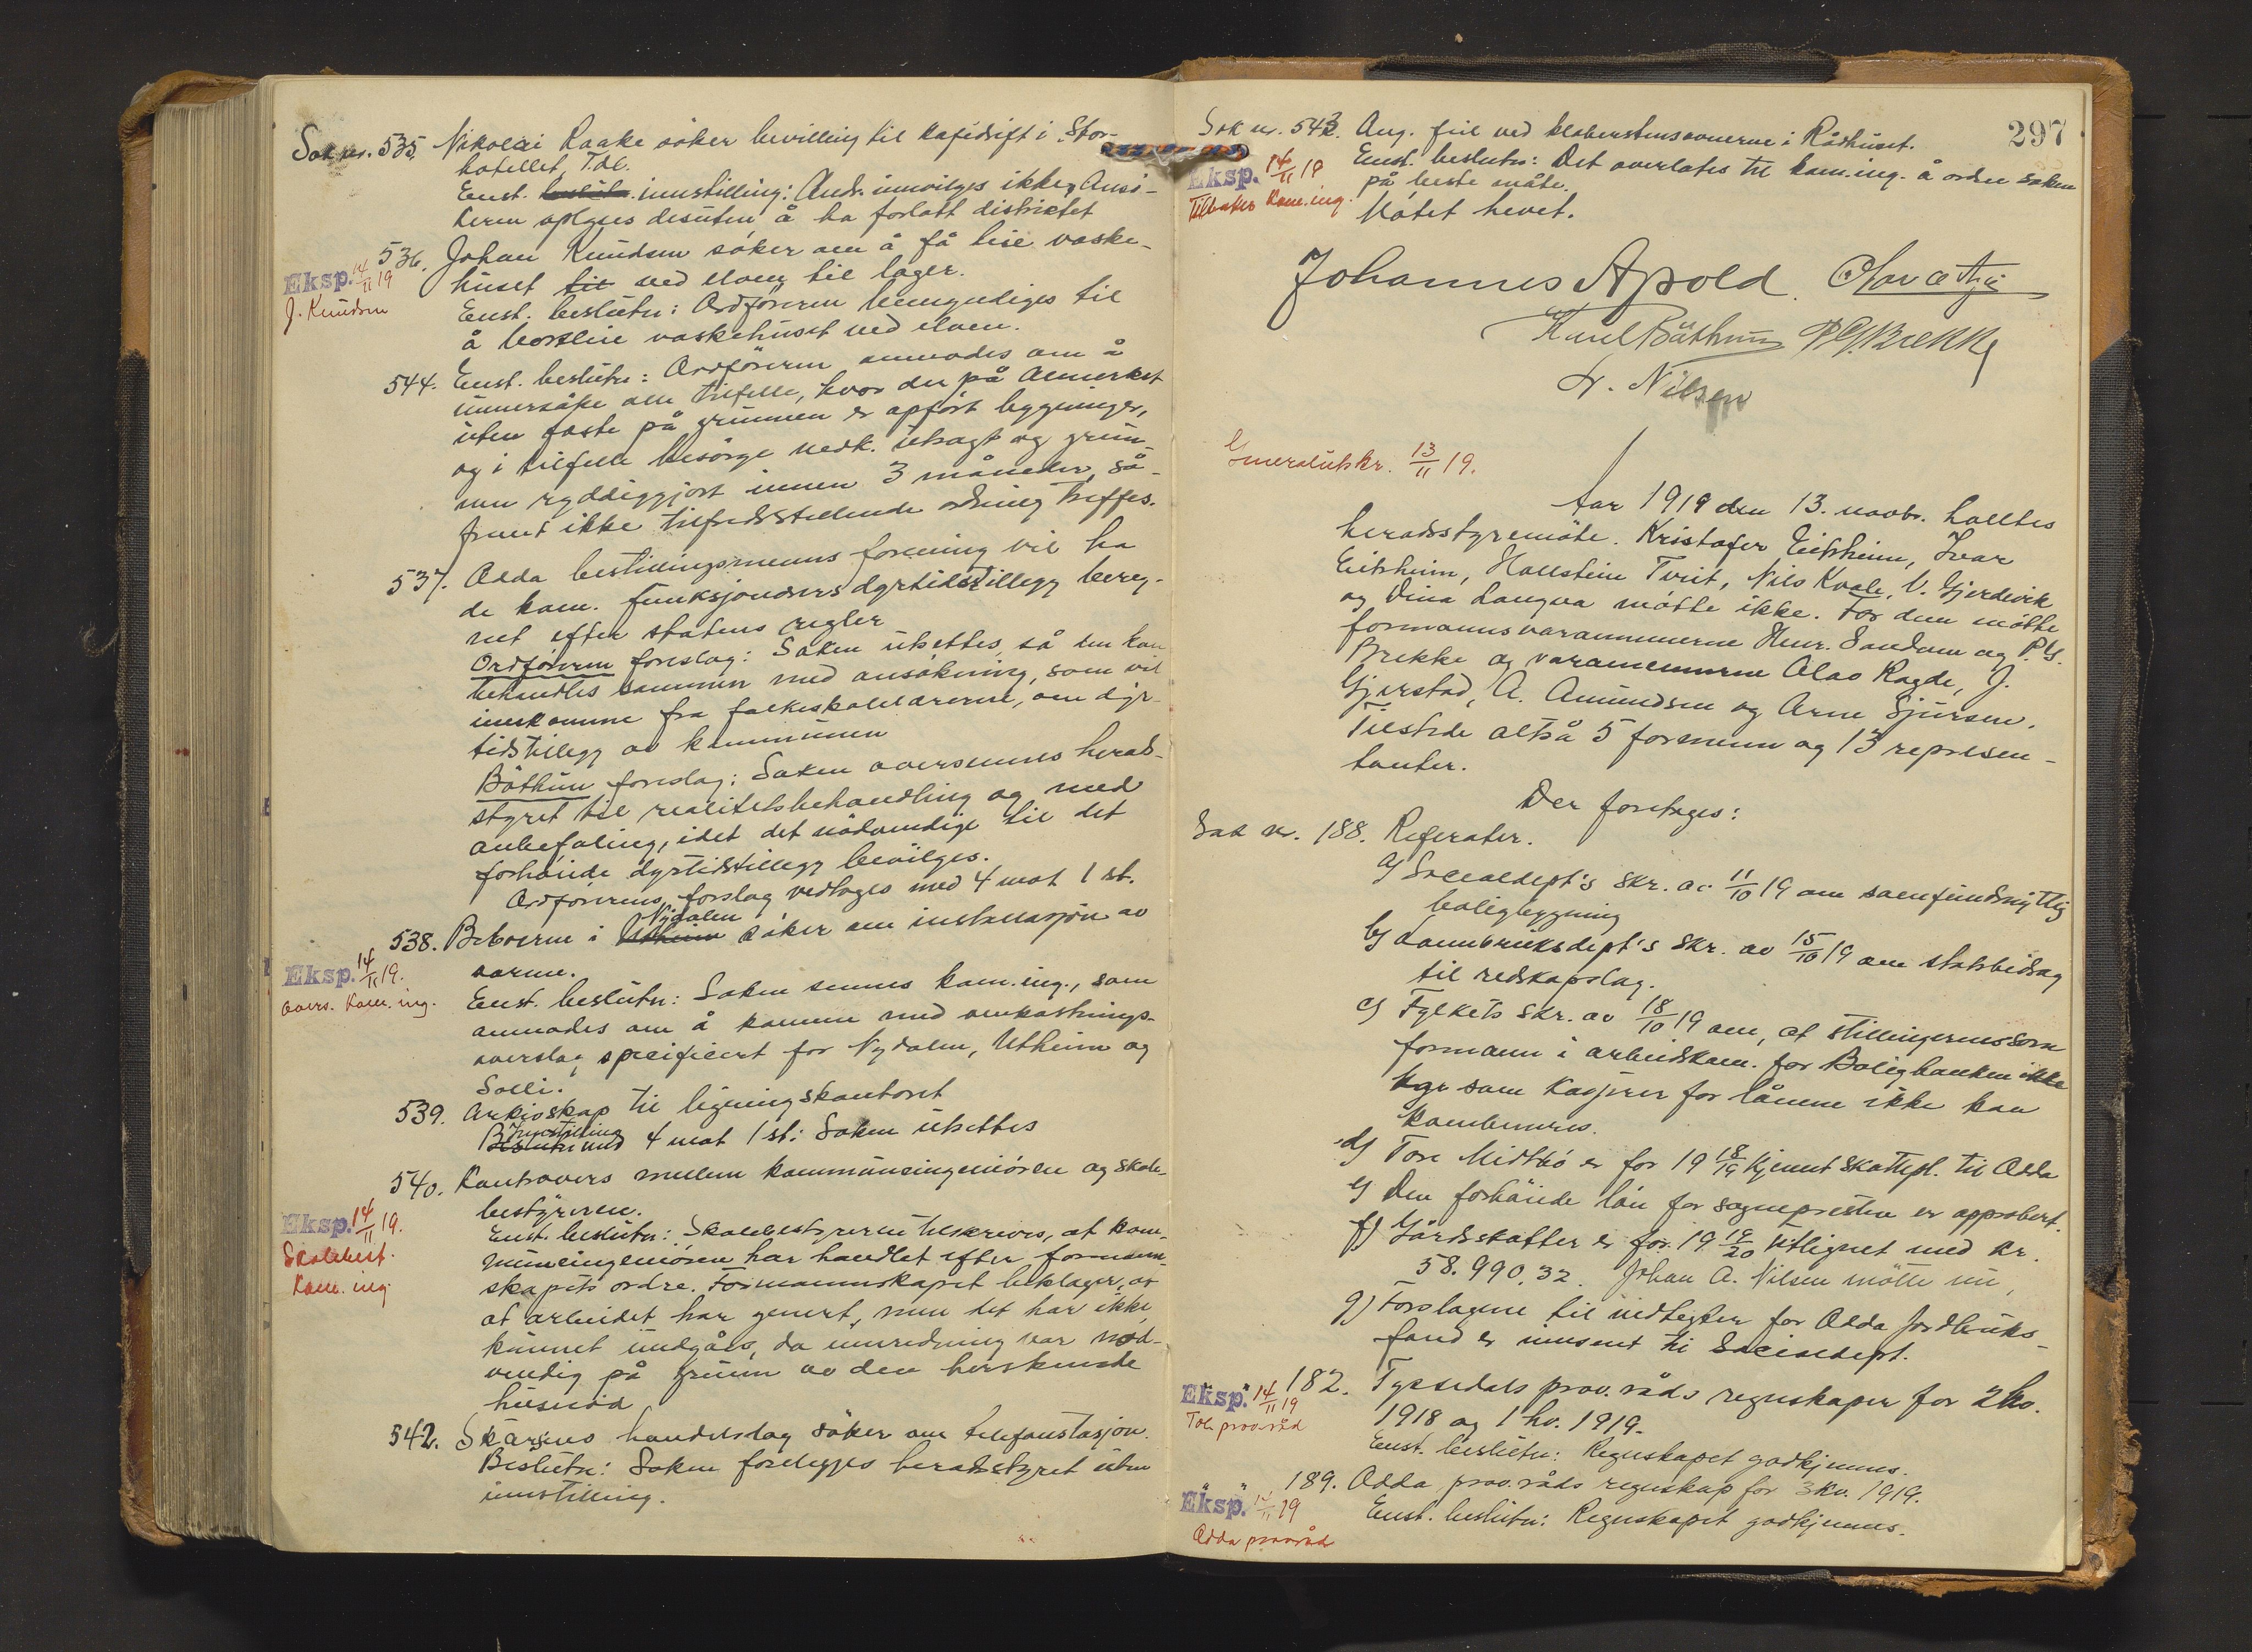 Sak nr. 535. Nikolai Raake søker bevilling til kafédrift i Stor-
hotellet, Tdl.
Enst. innstilling: Ands. innvilges ikke. Ansø-
keren oplyses desuten å ha forlatt distriktet
536. Johan Knudsen søker om å få leie vaske-
Eksp. 14/11 19
J. Knudsen
huset til ved elven til lager.
Enst. beslutn: Ordføreren bemyndiges til
å bortleie vaskehuset ved elven.
544. Enst. beslutn: Ordføreren anmodes om å
unnersøke alle tilfelle, hvor der på Almerket
uten feste på grunnen er opført bygninger,
og i tilfelle besørge nedk. utsagt og grun-
nen ryddiggjort innen 3 måneder, så-
fremt ikke tilfredsstillende ordning treffes.
537. Odda bestillingsmenns forening vil ha
de kom. funksjonærers dyrtidstillegg bereg-
net efter statens regler
Ordføreren foreslog: Saken utsettes, så den kan
behandles sammen med ansøkning, som vil
innkomme fra folkeskolelærerne, om dyr-
tidstillegg av kommunen
Båthun foreslog: Saken oversennes herads-
styret til realitetsbehandling og med
anbefaling, idet det nødvendige til det
forhøiede dyrtidstillegg bevilges.
Ordførerens forslag vedtages med 4 mot 1 st.
538. Beboerne i Utheim Nydalen søker om installasjon av
varme.
Eksp. 14/11 19.
overs. Kom. ing.
Enst. beslutn: Saken sennes kom.ing., som
anmodes om å komme med omkostnings-
overslag spesifisert for Nydalen, Utheim og
Solli.
539. Arkivskap til ligningskontoret
Beslutn Innstilling med 4 mot 1 st: Saken utsettes
540. Kontrovers mellem kommuneingeniøren og skole-
bestyreren.
Eksp. 14/11 19.
Skolebest.
Kom. ing
Enst. beslutn: Skolebestyreren tilskrives, at kom-
muneingeniøren har handlet efter formann-
skapets ordre. Formannskapet beklager, at
at arbeidet har genert, men det har ikke
kunnet undgåes, da innredning var nød-
vendig på grunn av den herskende
husnød
542. Skarsnes handelslag søker om telefonstasjon.
Beslutn: Saken forelegges heradsstyret uten
innstilling.
297
Sak nr. 543. Ang. feil ved kleberstensovnerne i Rådhuset.
Eksp. 14/11 19
Tilbake Kom. ing.
Enst. beslutn: Det overlates til kom.ing. å ordne saken
på beste måte.
Møtet hevet.
Johannes Apold. Olav Aga
Karl Båthun P.G. Brekke
N. Nilsen
Generalutskr. 13/11 19.
Aar 1919 den 13. novbr. holdtes
heradsstyremøte. Kristofer Eitrheim, Ivar
Eitrheim, Hallstein Tveit, Nils Kvale, V. Gjerdevik
og Dina Langva møtte ikke. For dem møtte
formannsvaramennerne Henr. Sandven og P.G.
Brekke og varamennerne Olav Ragde, J.
Gjerstad, A. Amundsen og Arne Sjursen.
Tilstede altså 5 formenn og 13 represen-
tanter.
Der foretages:
Sak nr. 188. Referater.
a) Socialdept's skr. av 11/10 19 om samfundsnyttig
boligbygning
b) Lannbruksdept's skr. av 15/10 19 om statsbidrag
til redskapslag.
c) Fylkets skr. av 18/10 19 om, at stillingerne som
formann i arbeidskom. for Boligbanken ikke
og som kasjerer for lånene ikke kan
kombineres.
d) Tore Midtbø er for 19 18/19 kjennt skattepl. til Odda
e) Den forhøiede løn for sognepresten er approbert.
f) Gårdsskatter er for 19 19/20 utlignet med kr.
58.990,32. Johan A. Nilsen møtte nu,
g) Forslagene til vedtegter for Odda Jordbruks-
fond er innsent til Socialdept.
182. Tyssedals prov.råds regnskaper for 2 hv.
Eksp. 14/11 19
Tdl. prov.råd
1918 og 1 hv. 1919.
Enst. beslutn: Regnskapet godkjennes.
189. Odda prov.råds regnskap for 3 kv. 1919.
Eksp. 14/11 19
Odda provråd
Enst. beslutn: Regnskapet godkjennes.